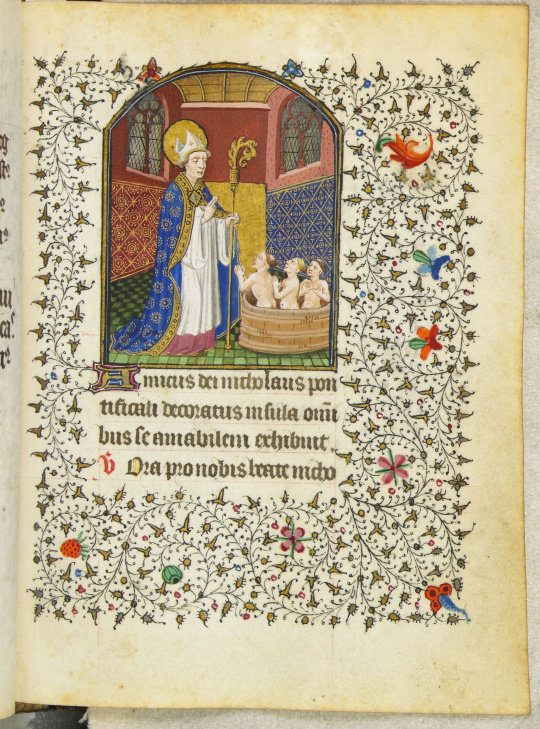 Amicus dei nicholaus pon
tificali decoratus insula omi
bus se amabilem exhibuit
V Ora pro nobis beate nicho